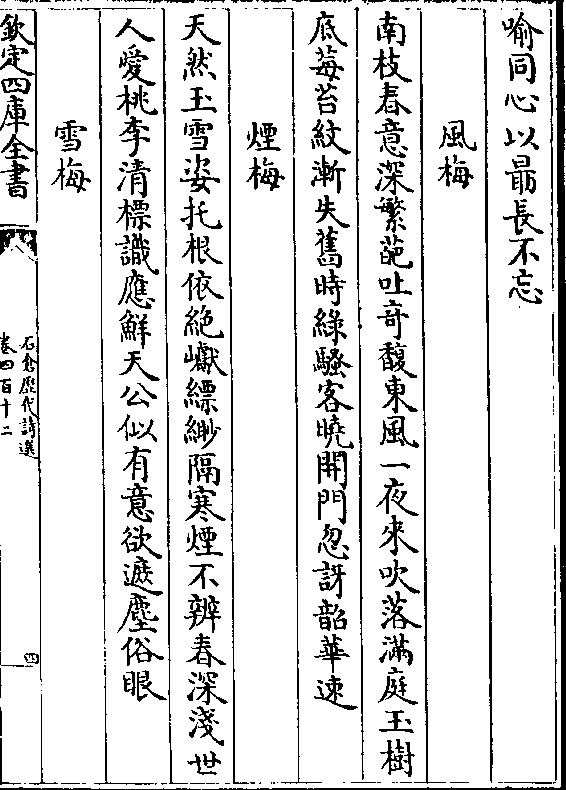 喻同心以最長不忘
風梅
南枝春意深繁葩吐奇馥東風一夜來吹落滿庭玉樹
底莓苔紋漸失舊時綠騷客曉開門忽訝韶華速
煙梅
天然玉雪姿托根依絶巘縹緲隔寒煙不辨春深淺世
人愛桃李清標識應鮮天公似有意欲遮塵俗眼
雪梅
欽定四庫全書
石倉歷代詩選
卷四百十二
四